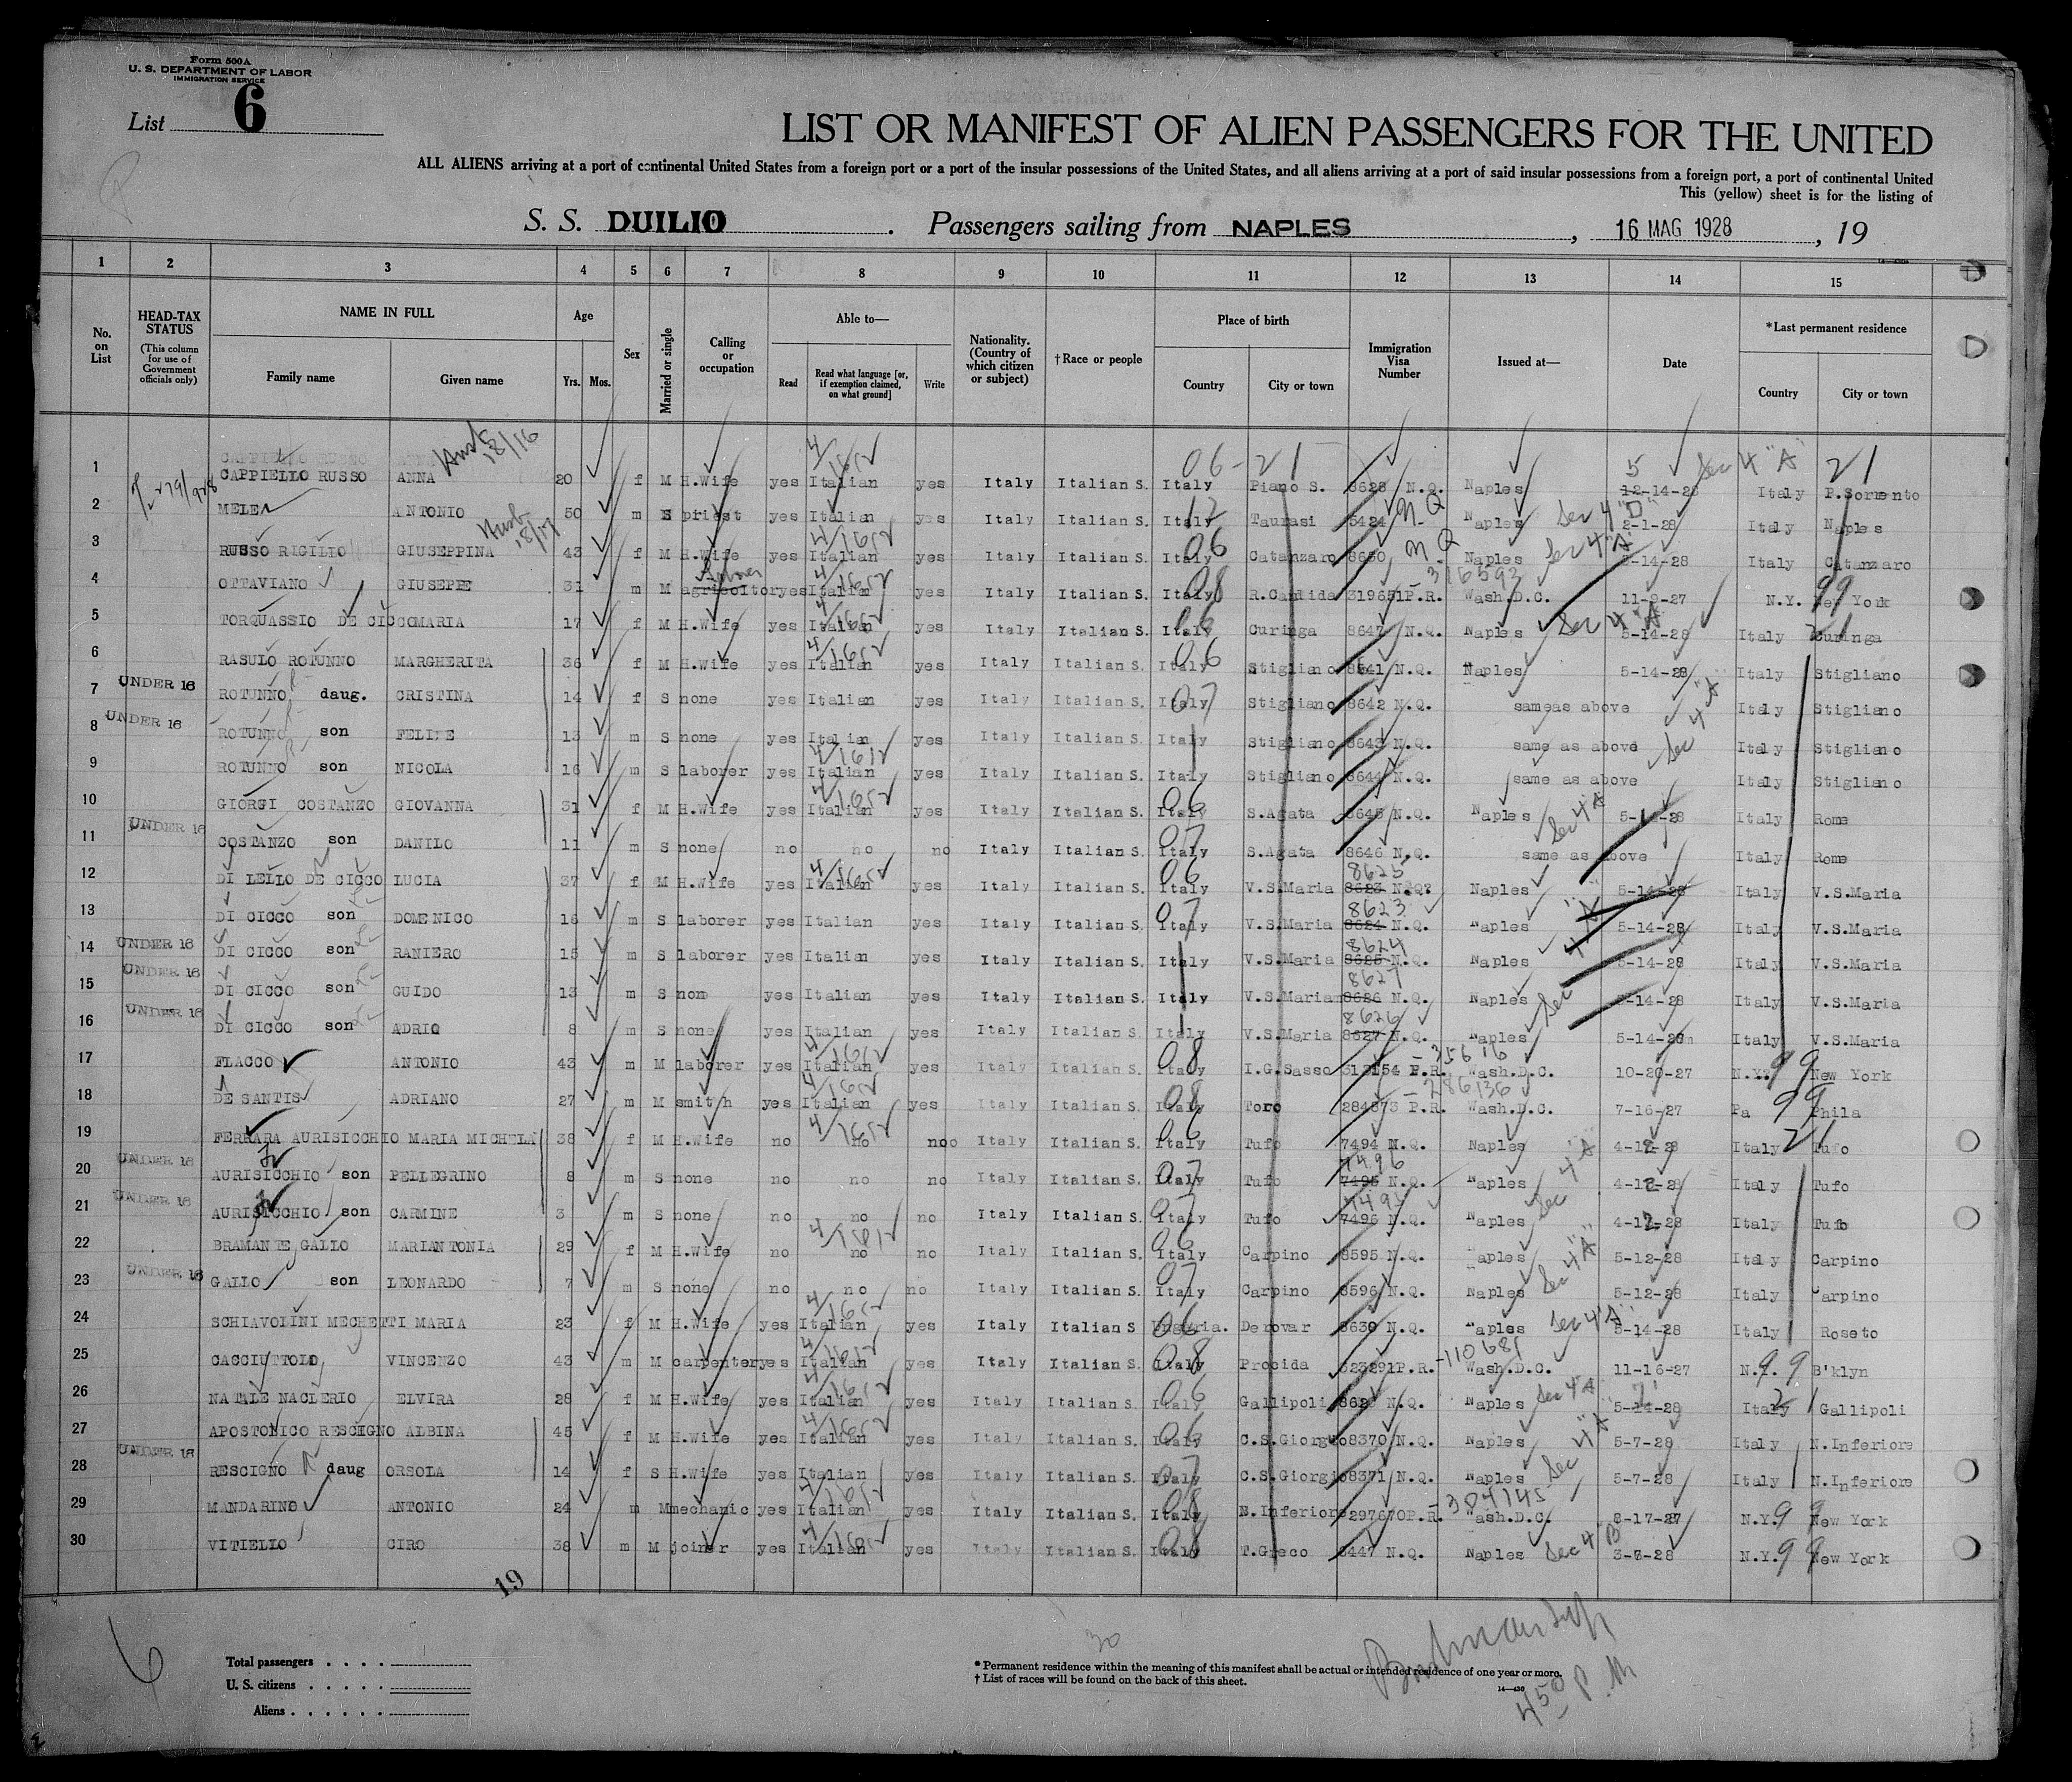 Form 500A
U. S. DEPARTMENT OF LABOR
IMMIGRATION SERVICE
List 6
LIST OR MANIFEST OF ALIEN PASSENGERS FOR THE UNITED
ALL ALIENS arriving at a port of continental United States from a foreign port or a port of the insular possessions of the United States, and all aliens arriving at a port of said insular possessions from a foreign port, a port of continental United
This (yellow) sheet is for the listing of
S. S. DUILIO. Passengers sailing from NAPLES, 16 MAG 1928, 19
1 2 3 4 5 6 7 8 9 10 11 12 13 14 15
No. on List HEAD-TAX STATUS (This column for use of Government officials only) NAME IN FULL Family name Given name Age Yrs. Mos. Sex Married or single Calling or occupation Able to— Read Read what language [or, if exemption claimed, on what ground] Write Nationality. (Country of which citizen or subject) †Race or people Place of birth Country City or town Immigration Visa Number Issued at— Date *Last permanent residence Country City or town
1 CAPPIELLO RUSSO ANNA 20 f M H.Wife yes Italian yes Italy Italian S. Italy Piano S. 8628 N.Q. Naples 5 12-14-28 Sec 4 "A" Italy P.Sorrento
2 MELE ANTONIO 50 m S priest yes Italian yes Italy Italian S. Italy Taurasi 5424 N.Q Naples Sec 4 "D" 2-1-28 Italy Naples
3 RUSSO RIGILIO GIUSEPPINA 43 f M H.Wife yes Italian yes Italy Italian S. Italy Catanzaro 8650 N.Q Naples Sec 4 "A" 5-14-28 Italy Catanzaro
4 OTTAVIANO GIUSEPPE 31 m M agricoltor yes Italian yes Italy Italian S. Italy R.Candida 319651P.R. 316593 Wash.D.C. 11-9-27 N.Y. New York
5 TORQUASSIO DE CICCO MARIA 17 f M H.Wife yes Italian yes Italy Italian S. Italy Curinga 8647 N.Q. Naples Sec 4 "A" 5-14-28 Italy Curinga
6 RASULO ROTUNNO MARGHERITA 36 f M H.Wife yes Italian yes Italy Italian S. Italy Stigliano 8641 N.Q. Naples 5-14-28 Italy Stigliano
7 UNDER 16 ROTUNNO daug. CRISTINA 14 f S none yes Italian yes Italy Italian S. Italy Stigliano 8642 N.Q. sameas above Italy Stigliano
8 UNDER 16 ROTUNNO son FELICE 13 m S none yes Italian yes Italy Italian S. Italy Stigliano 8643 N.Q. same as above Italy Stigliano
9 ROTUNNO son NICOLA 16 m S laborer yes Italian yes Italy Italian S. Italy Stigliano 8644 N.Q. same as above Italy Stigliano
10 GIORGI COSTANZO GIOVANNA 31 f M H.Wife yes Italian yes Italy Italian S. Italy S.Agata 8645 N.Q. Naples 5-14-28 Italy Rome
11 UNDER 16 COSTANZO son DANILO 11 m S none no no no Italy Italian S. Italy S.Agata 8646 N.Q. same as above Italy Rome
12 DI LELLO DE CICCO LUCIA 37 f M H.Wife yes Italian yes Italy Italian S. Italy V.S.Maria 8625 8623 N.Q. Naples 5-14-28 Italy V.S.Maria
13 DI CICCO son DOMENICO 16 m S laborer yes Italian yes Italy Italian S. Italy V.S.Maria 8623 8624 N.Q. Naples 5-14-28 Italy V.S.Maria
14 UNDER 16 DI CICCO son RANIERO 15 m S laborer yes Italian yes Italy Italian S. Italy V.S.Maria 8624 8625 N.Q. Naples 5-14-28 Italy V.S.Maria
15 UNDER 16 DI CICCO son GUIDO 13 m S none yes Italian yes Italy Italian S. Italy V.S.Maria 8627 8626 N.Q. Naples 5-14-28 Italy V.S.Maria
16 UNDER 16 DI CICCO son ADRIO 8 m S none yes Italian yes Italy Italian S. Italy V.S.Maria 8626 8627 N.Q. Naples 5-14-28 Italy V.S.Maria
17 FLACCO ANTONIO 43 m M laborer yes Italian yes Italy Italian S. Italy I.G.Sasso P.R. Wash.D.C. 10-20-27 N.Y. New York
18 DE SANTIS ADRIANO 27 m M smith yes Italian yes Italy Italian S. Italy Toro 284873 P.R. 286136 Wash.D.C. 7-16-27 Pa Phila
19 FERRARA AURISICCHIO MARIA MICHELA 38 f M H.Wife no no no Italy Italian S. Italy Tufo 7494 N.Q. Naples 4-12-28 Italy Tufo
20 UNDER 16 AURISICCHIO son PELLEGRINO 8 m S none no no no Italy Italian S. Italy Tufo 7496 7495 N.Q. Naples 4-12-28 Italy Tufo
21 UNDER 16 AURISICCHIO son CARMINE 3 m S none no no no Italy Italian S. Italy Tufo 7495 7496 N.Q. Naples 4-12-28 Italy Tufo
22 BRAMANTE GALLO MARIANTONIA 29 f M H.Wife no no no Italy Italian S. Italy Carpino 8595 N.Q. Naples 5-12-28 Italy Carpino
23 UNDER 16 GALLO son LEONARDO 7 m S none no no no Italy Italian S. Italy Carpino 8596 N.Q. Naples 5-12-28 Italy Carpino
24 SCHIAVOLINI MECHETTI MARIA 23 f M H.Wife yes Italian yes Italy Italian S Ungaria. Derovar 8630 N.Q. Naples Sec 4 "A" 5-14-28 Italy Roseto
25 CACCIUTTOLO VINCENZO 43 m M carpenter yes Italian yes Italy Italian S. Italy Procida 623291P.R. 110681 Wash.D.C. 11-16-27 N.Y. B'klyn
26 NATALE NACLERIO ELVIRA 28 f M H.Wife yes Italian yes Italy Italian S. Italy Gallipoli N.Q. Naples Sec 4 "A" 5-14-28 Italy Gallipoli
27 APOSTOLICO RESCIGNO ALBINA 45 f M H.Wife yes Italian yes Italy Italian S. Italy C.S.Giorgio 8370 N.Q. Naples 5-7-28 Italy N.Inferiore
28 UNDER 16 RESCIGNO daug ORSOLA 14 f S H.Wife yes Italian yes Italy Italian S. Italy C.S.Giorgio 8371 N.Q. Naples 5-7-28 Italy N.Inferiore
29 MANDARINO ANTONIO 24 m M mechanic yes Italian yes Italy Italian S. Italy N.Inferiore 297670P.R. 304145 Wash.D.C. 8-17-27 N.Y. New York
30 VITIELLO CIRO 38 m M joiner yes Italian yes Italy Italian S. Italy T.Greco 6447 N.Q. Naples Sec 4 B 3-8-28 N.Y. New York
19
6
Total passengers
U. S. citizens
Aliens
30
* Permanent residence within the meaning of this manifest shall be actual or intended residence of one year or more.
† List of races will be found on the back of this sheet.
14—430
450 P.M